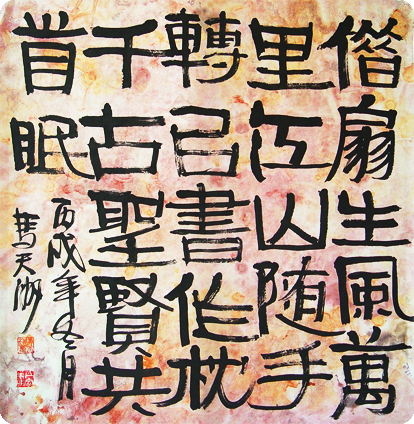 借扇生風萬
里江山随手
轉㠯書作枕
千古聖賢共
首眠
丙戌年冬月
馬天